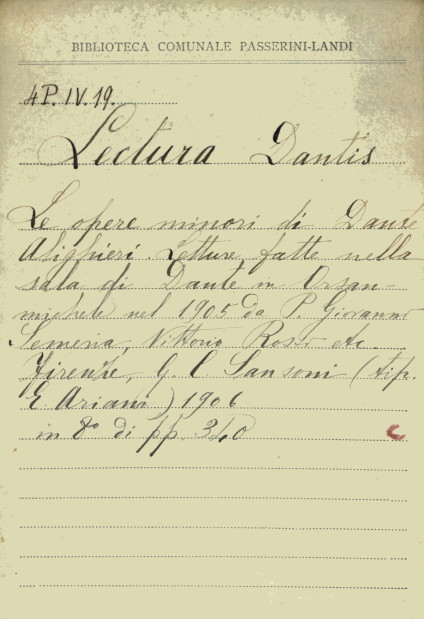 BIBLIOTECA COMUNALE PASSERINI-LANDI
4P. IV. 19.
Lectura Dantis
Le opere minori di Dante
Alighieri. Letture fatte nella
sala di Dante in Orsan-
michele nel 1905 da P. Giovanni
Semeria, Vittorio Rossi etc.
Firenze, G. C. Sansoni (tip.
E Ariani) 1906
in 8° di pp. 340